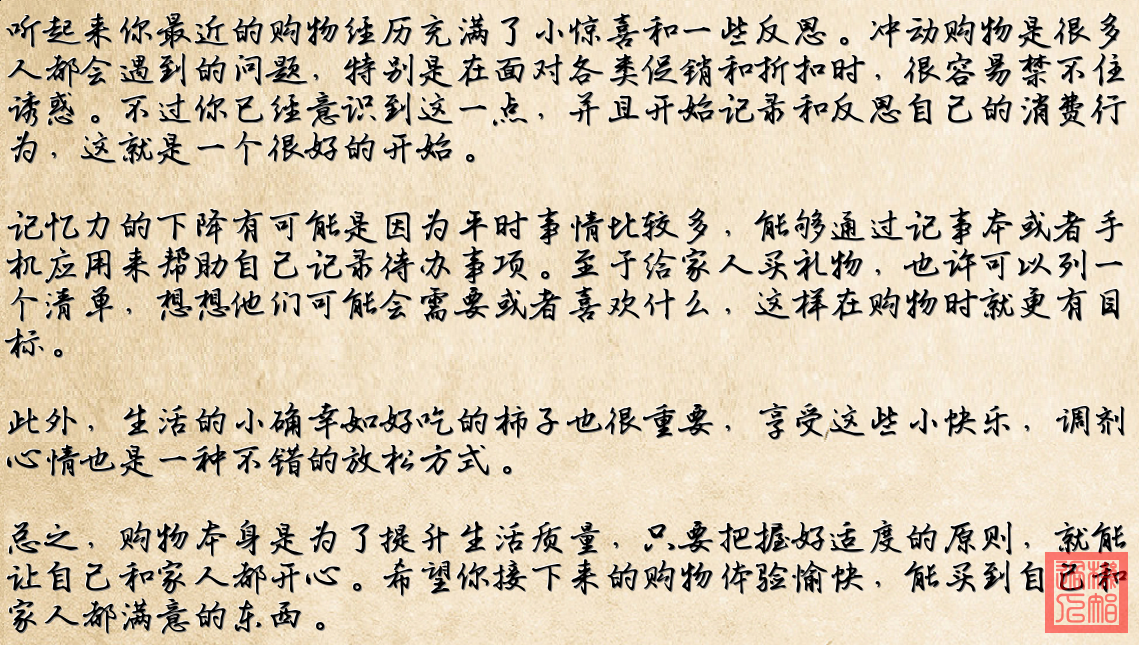 听起来你最近的购物经历充满了小惊喜和一些反思。冲动购物是很多
人都会遇到的问题，特别是在面对各类促销和折扣时，很容易禁不住
诱惑。不过你已经意识到这一点，并且开始记录和反思自己的消费行
为，这就是一个很好的开始。
记忆力的下降有可能是因为平时事情比较多，能够通过记事本或者手
机应用来帮助自己记录待办事项。至于给家人买礼物，也许可以列一
个清单，想想他们可能会需要或者喜欢什么，这样在购物时就更有目
标。
此外，生活的小确幸如好吃的柿子也很重要，享受这些小快乐，调剂
心情也是一种不错的放松方式。
总之，购物本身是为了提升生活质量，只要把握好适度的原则，就能
让自己和家人都开心。希望你接下来的购物体验愉快，能买到自己和
家人都满意的东西。